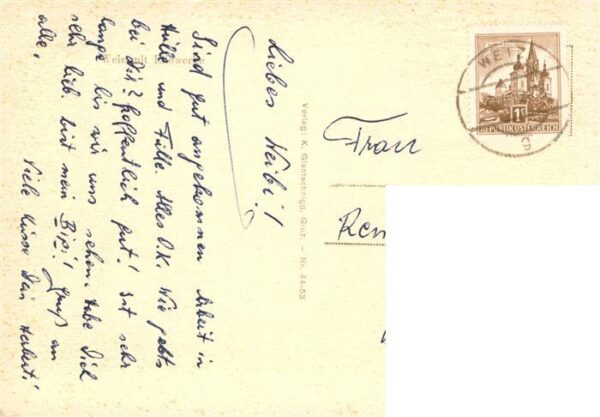 Liebes Weibi!
Sind gut angekommen Arbeit in
Hülle und Fülle. Alles O.K. Wie gehts
bei Dir? Hoffentlich gut! Ist sehr
lange bis wir uns sehen. Habe Dich
sehr lieb, bist mein Bipi! Gruß an
alle.
Viele Küsse Dein Herbert!
Weiz mit
Verlag: K. Glantschnigg, Graz. — Nr. 44-53
Frau
Ren
WEIZ
1S
REPUBLIK ÖSTERREICH